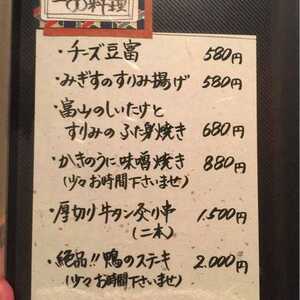 一品料理
・チーズ豆富 580円
・みぎすのすりみ揚げ 580円
・富山のしいたけと
すりみのふた身焼き 680円
・かきのうに味噌焼き 880円
(少々お時間下さいませ)
・厚切り牛タン炙り串 1.500円
(二本)
・絶品!!鴨のステーキ 2.000円
(少々お時間下さいませ)